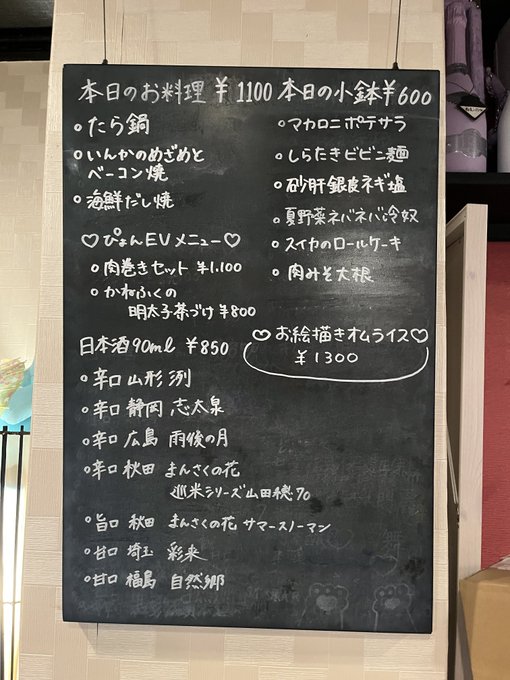 本日のお料理 ¥1100
○たら鍋
○いんかのめざめと
ベーコン焼
○海鮮だし焼
♡ぴょんEVメニュー♡
○肉巻きセット ¥1.100
○かねふくの
明太子茶づけ ¥800
日本酒90ml ¥850
○辛口 山形 洌
○辛口 静岡 志太泉
○辛口 広島 雨後の月
○辛口 秋田 まんさくの花
巡米シリーズ山田穂70
○旨口 秋田 まんさくの花 サマースノーマン
○甘口 埼玉 彩来
○甘口 福島 自然郷
本日の小鉢¥600
○マカロニポテサラ
○しらたきビビン麺
○砂肝銀皮ネギ塩
○夏野菜ネバネバ冷奴
○スイカのロールケーキ
○肉みそ大根
♡お絵描きオムライス♡
¥1300